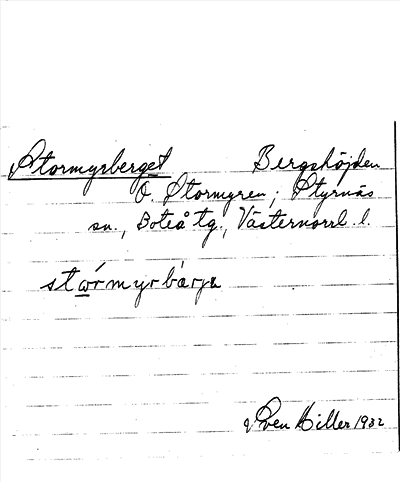 Stormyrberget Bergshöjden
Ö. Stormyren; Styrnäs
sn., Boteå tg., Västernorrl. l.
stωrmyrbárja
Sven Hiller 1932